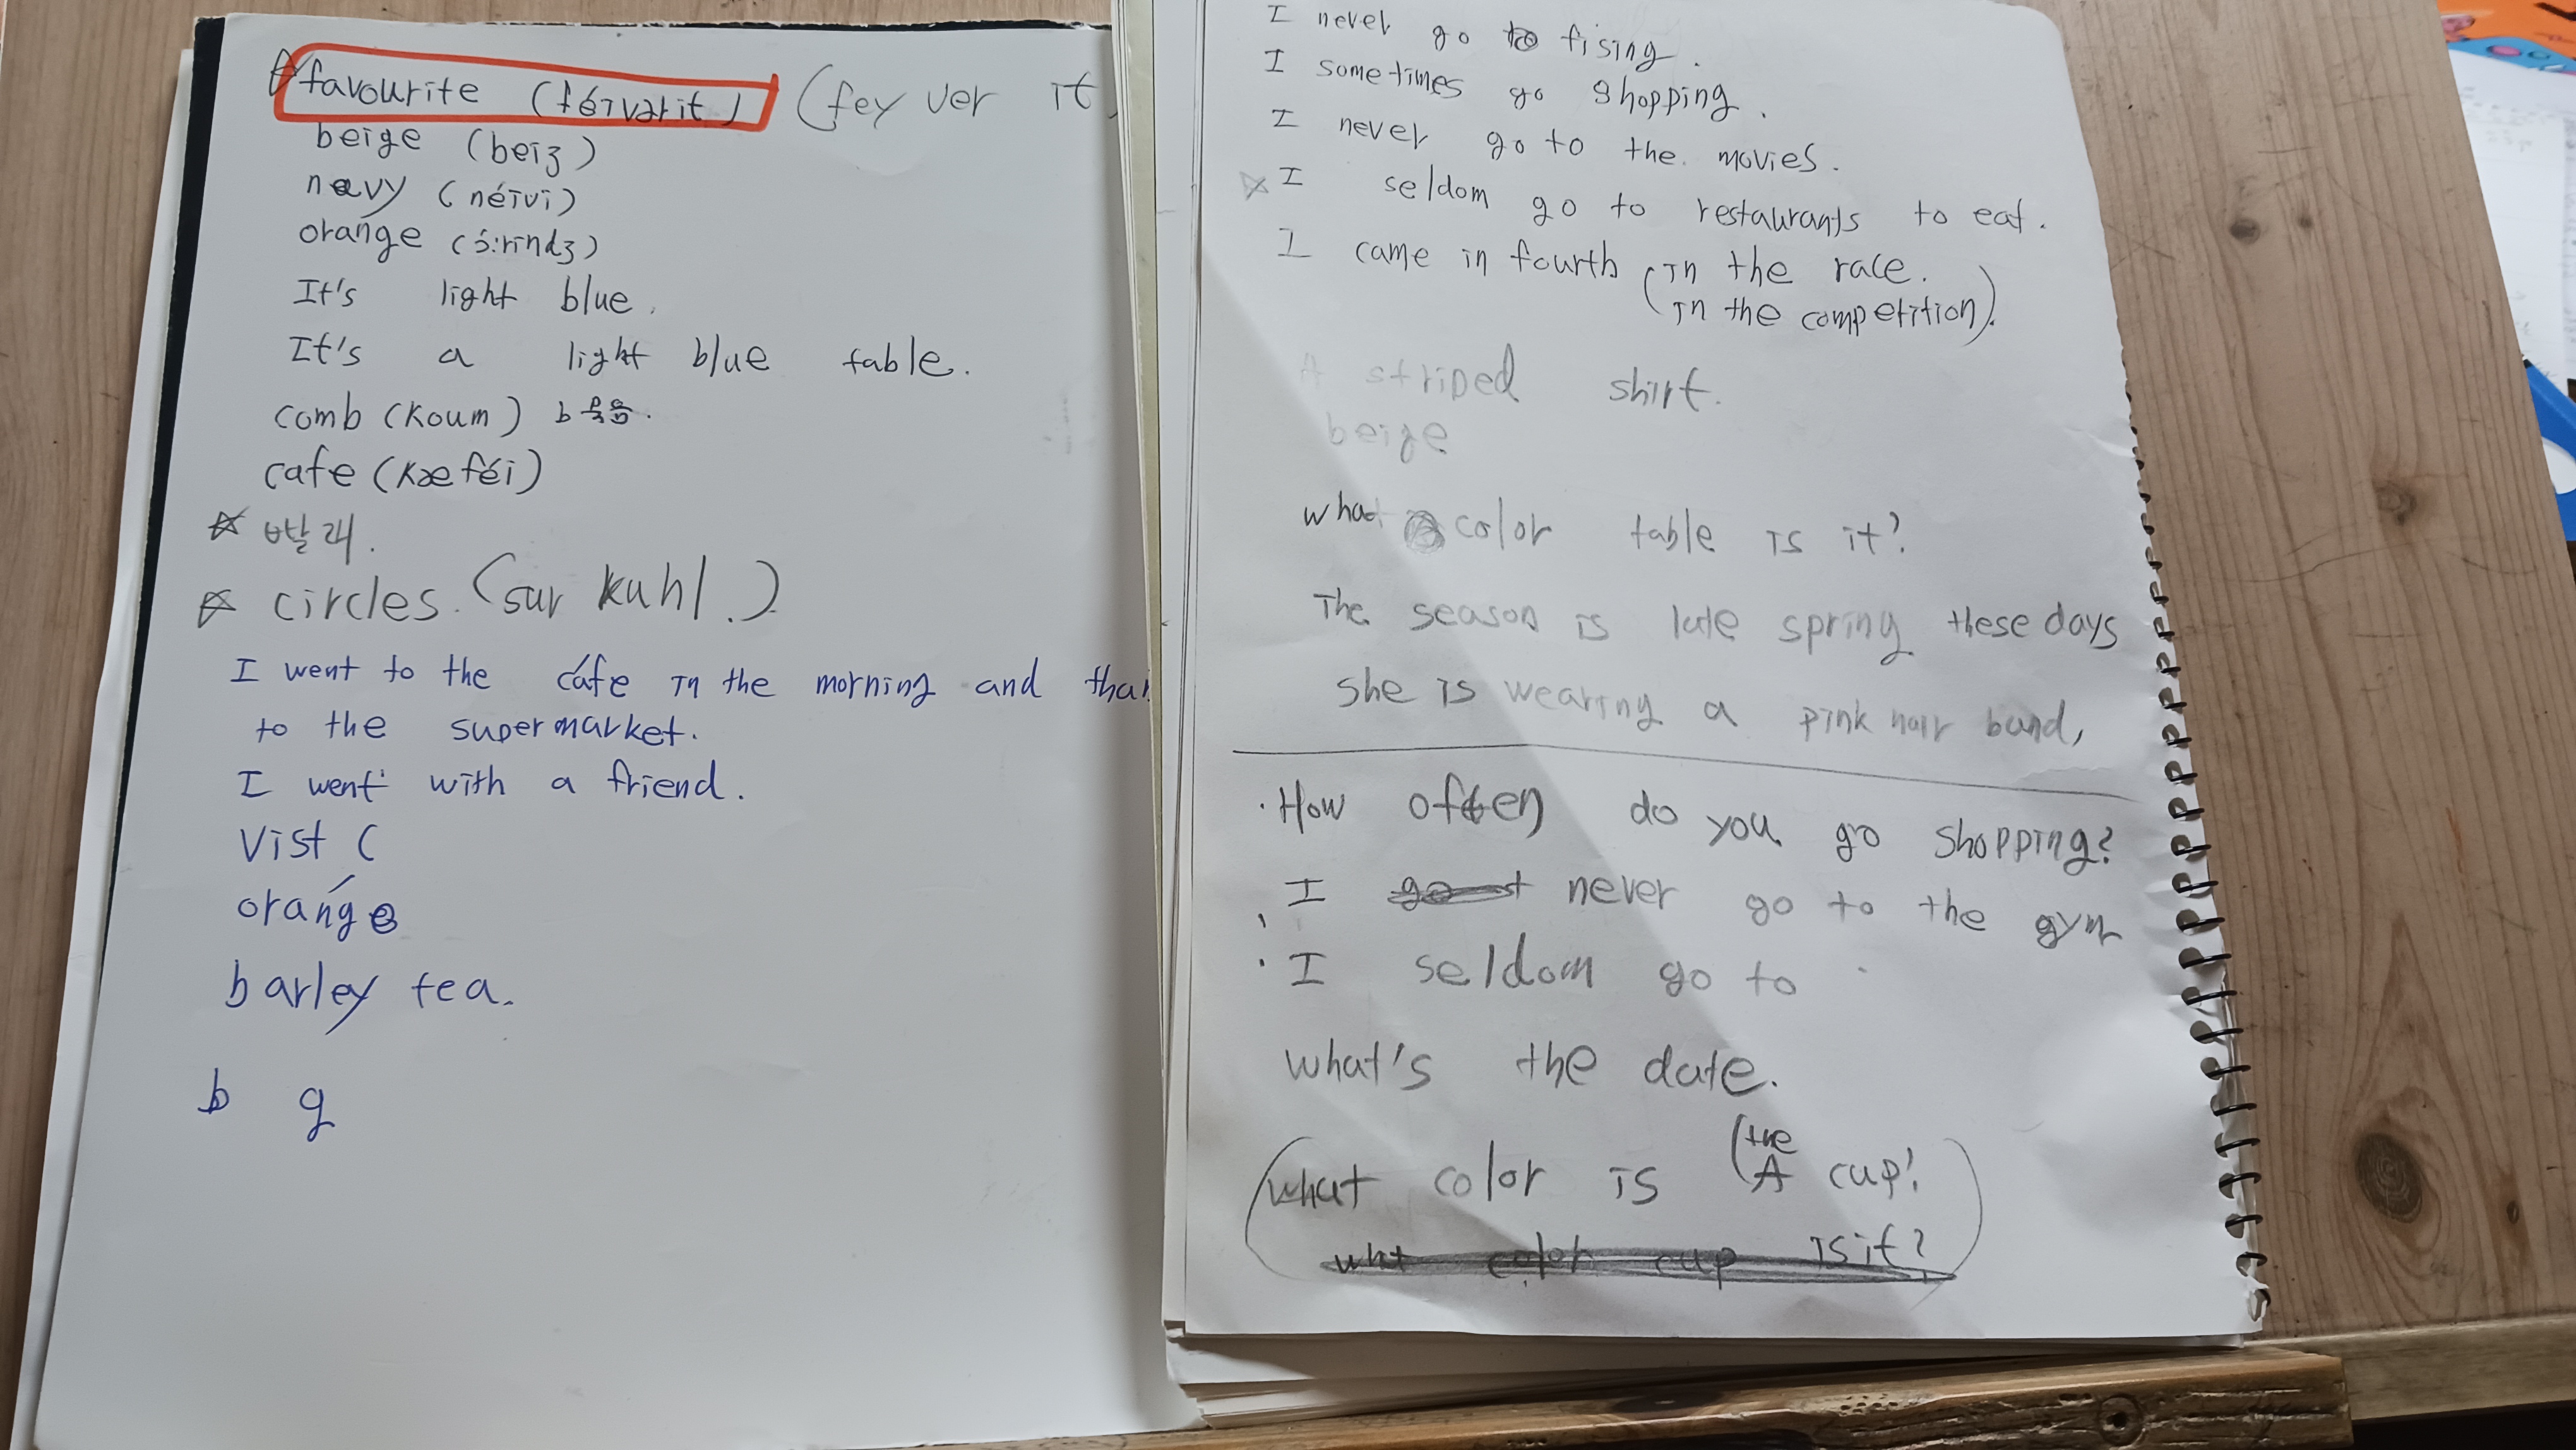 favourite (féivərit) (fey ver it)
beige (beiʒ)
navy (néivi)
orange (ɔ́:rindʒ)
It's light blue.
It's a light blue table.
comb (koum) b묵음.
cafe (kæféi)
☆ 발래.
☆ circles. (sur kuhl.)
I went to the cáfe in the morning and
to the supermarket.
I went with a friend.
Vist (
oránge
barley tea.
b g
I never go to fising.
I sometimes go shopping.
I never go to the movies.
☆ I seldom go to restaurants to eat.
I came in fourth (in the race.
(in the competition).
A striped shirt.
beige
what color table is it?
The season is late spring these days
she is wearing a pink hair band,
· How often do you go shopping?
I never go to the gym
· I seldom go to
what's the date.
(the
what color is A cup?
wht color cup is it?